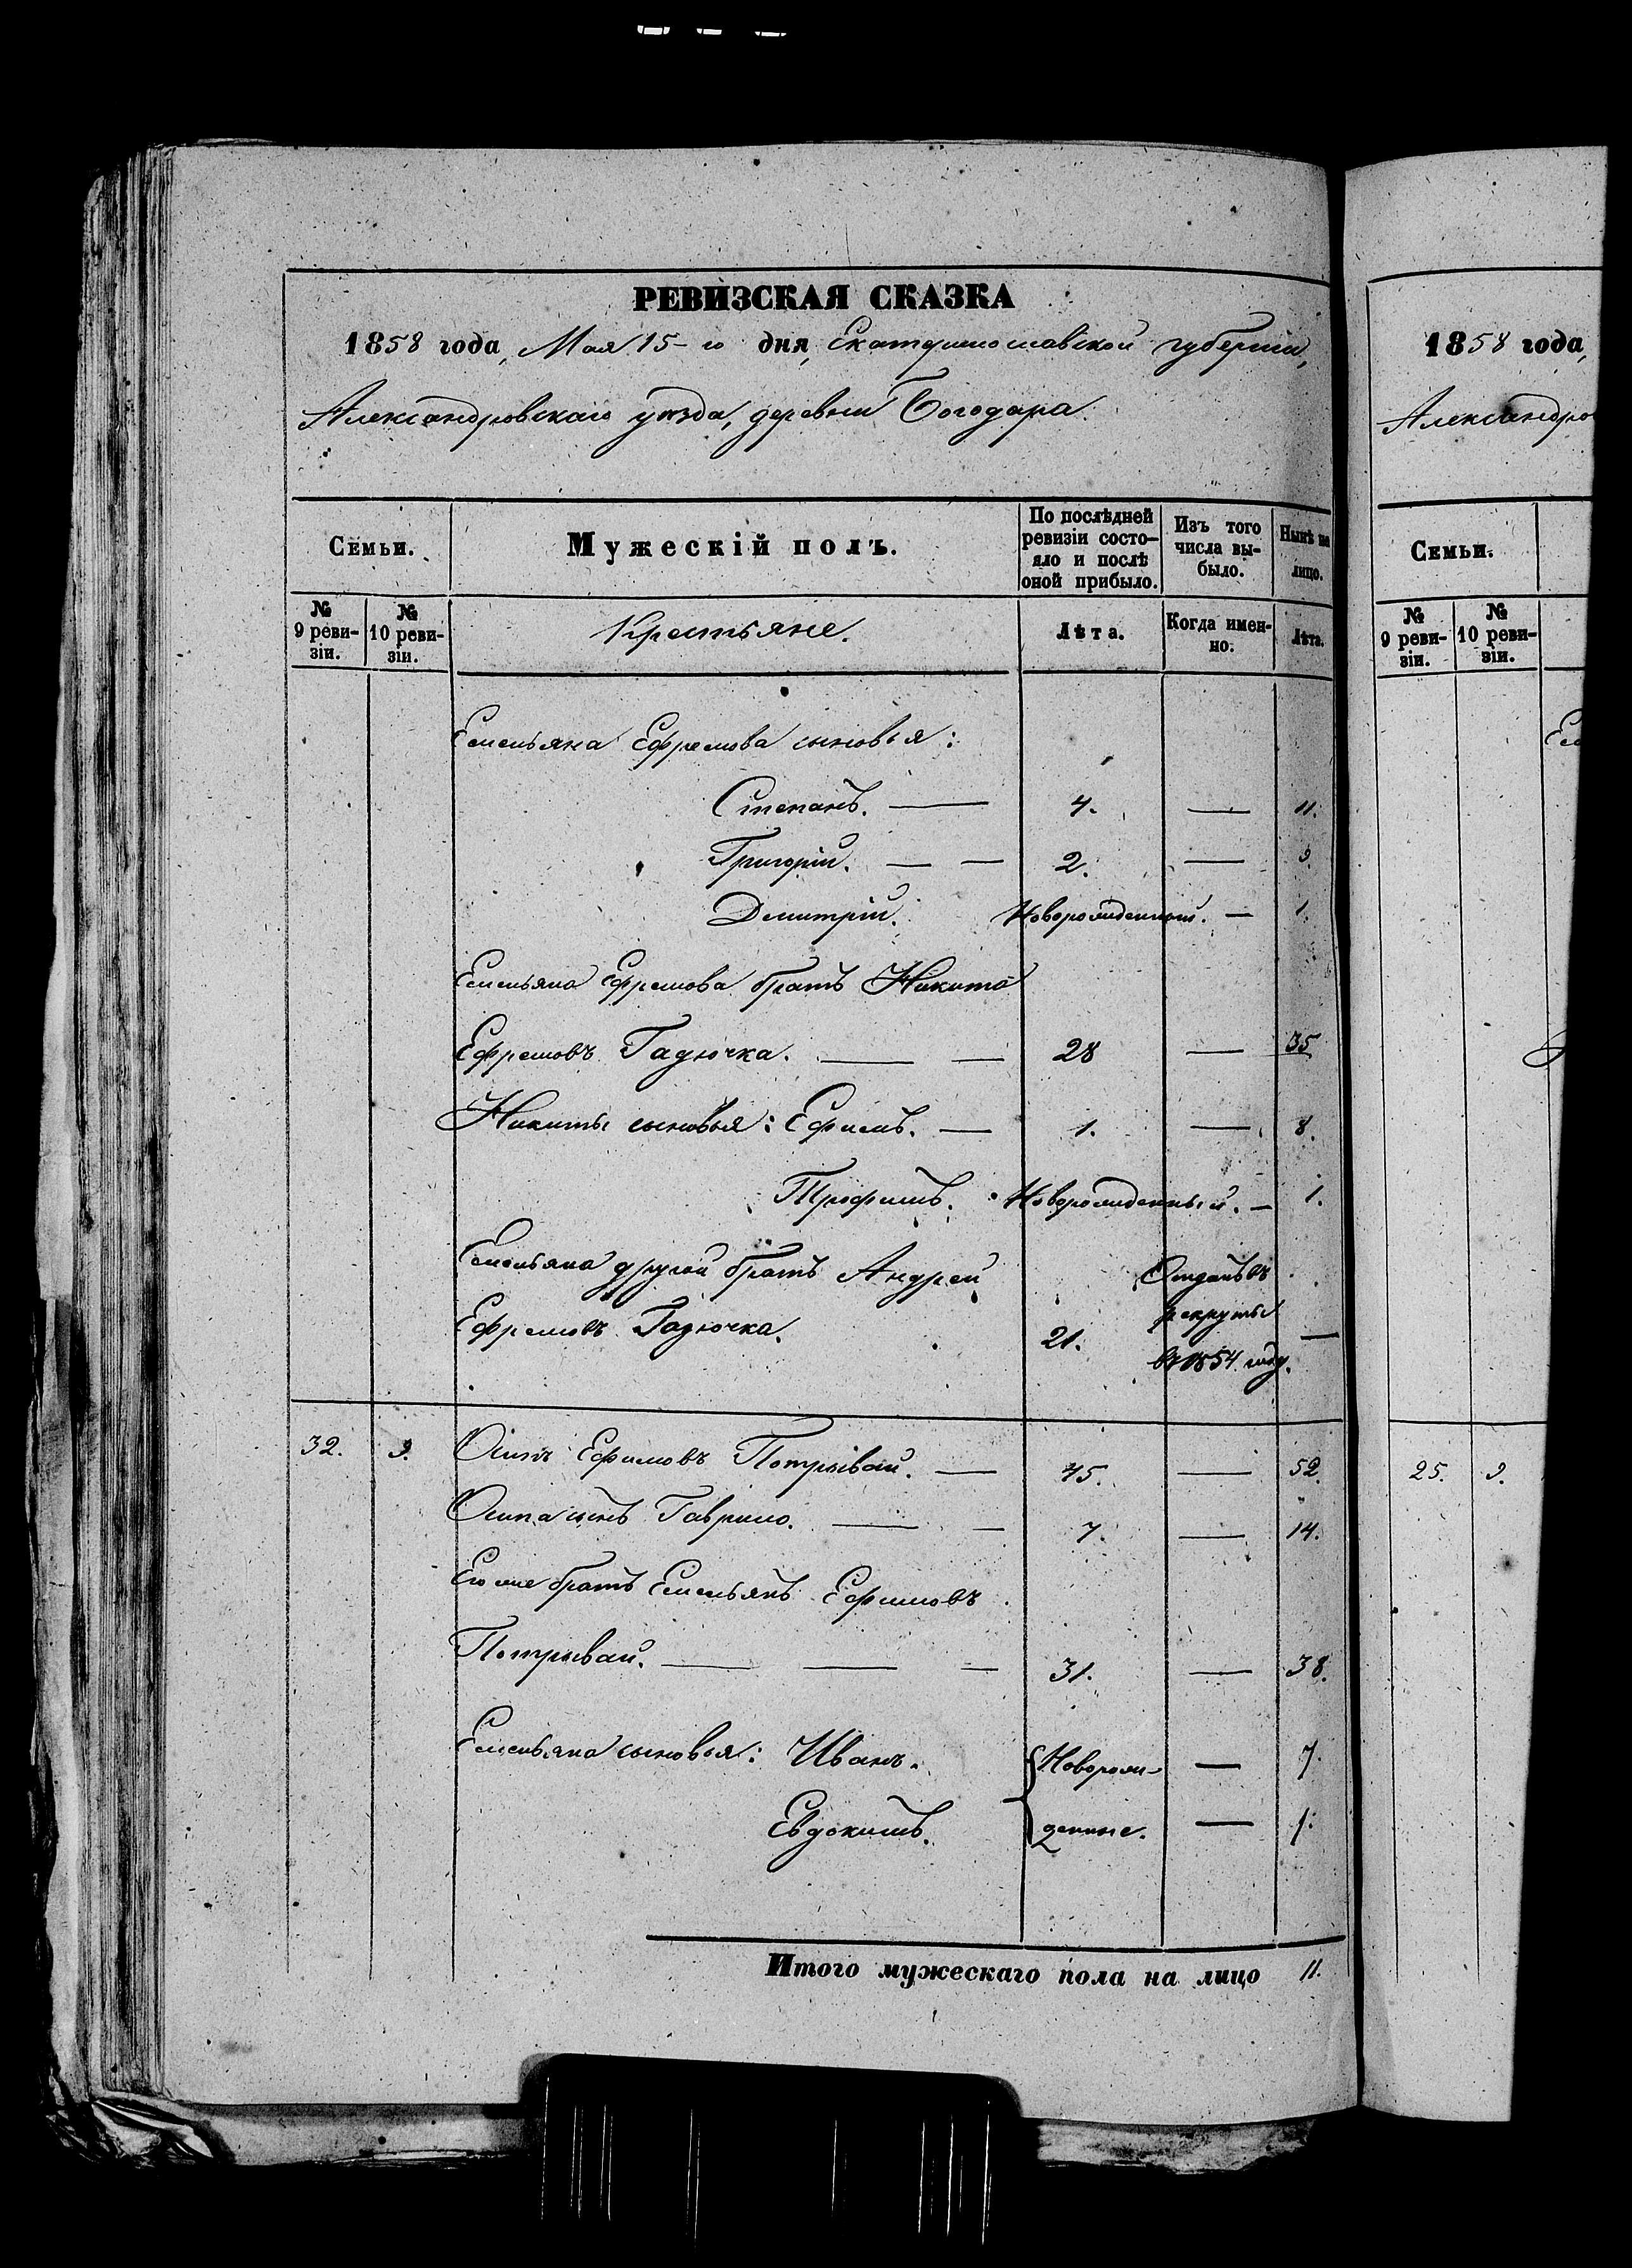 РЕВИЗСКАЯ СКАЗКА
1858 года, Мая 15-го дня, Екатеринославской губерніи,
Александровскаго уѣзда, деревни Богодара
Семьи.
Мужескій полъ.
По послѣдней ревизіи состо-
яло и послѣ оной прибыло.
Изъ того числа вы-
было.
Нынѣ на лицо.
№ 9 реви-
зіи.
№ 10 реви-
зіи.
Крестьяне.
Лѣта.
Когда имен-
но.
Лѣта.
Емельяна Ефремова сыновья:
Степанъ. — 4. — 11.
Григорій. — — 2. — 9.
Дмитрій. Новорожденный. — 1.
Емельяна Ефремова братъ Никита
Ефремовъ Гадючка. — — 28 — 35
Никиты сыновья: Ефимъ. — 1. — 8.
Трофимъ. Новорожденный. — 1.
Емельяна другой братъ Андрей
Ефремовъ Гадючка. 21. —
Отданъ въ
рекруты
въ 1854 году.
32. 9. Осипъ Ефимовъ Потрывай. — 45. — 52.
Осипа сынъ Гаврило. — — 7. — 14.
Его же братъ Емельянъ Ефимовъ
Потрывай. — — — 31. — 38.
Емельяна сыновья: Иванъ. Наворож- — 7.
Евдокимъ. денные. — 1.
Итого мужескаго пола на лицо 11.
1858 года,
Александро
Семьи.
№ 9 реви-
зіи.
№ 10 реви-
зіи.
25. 9.